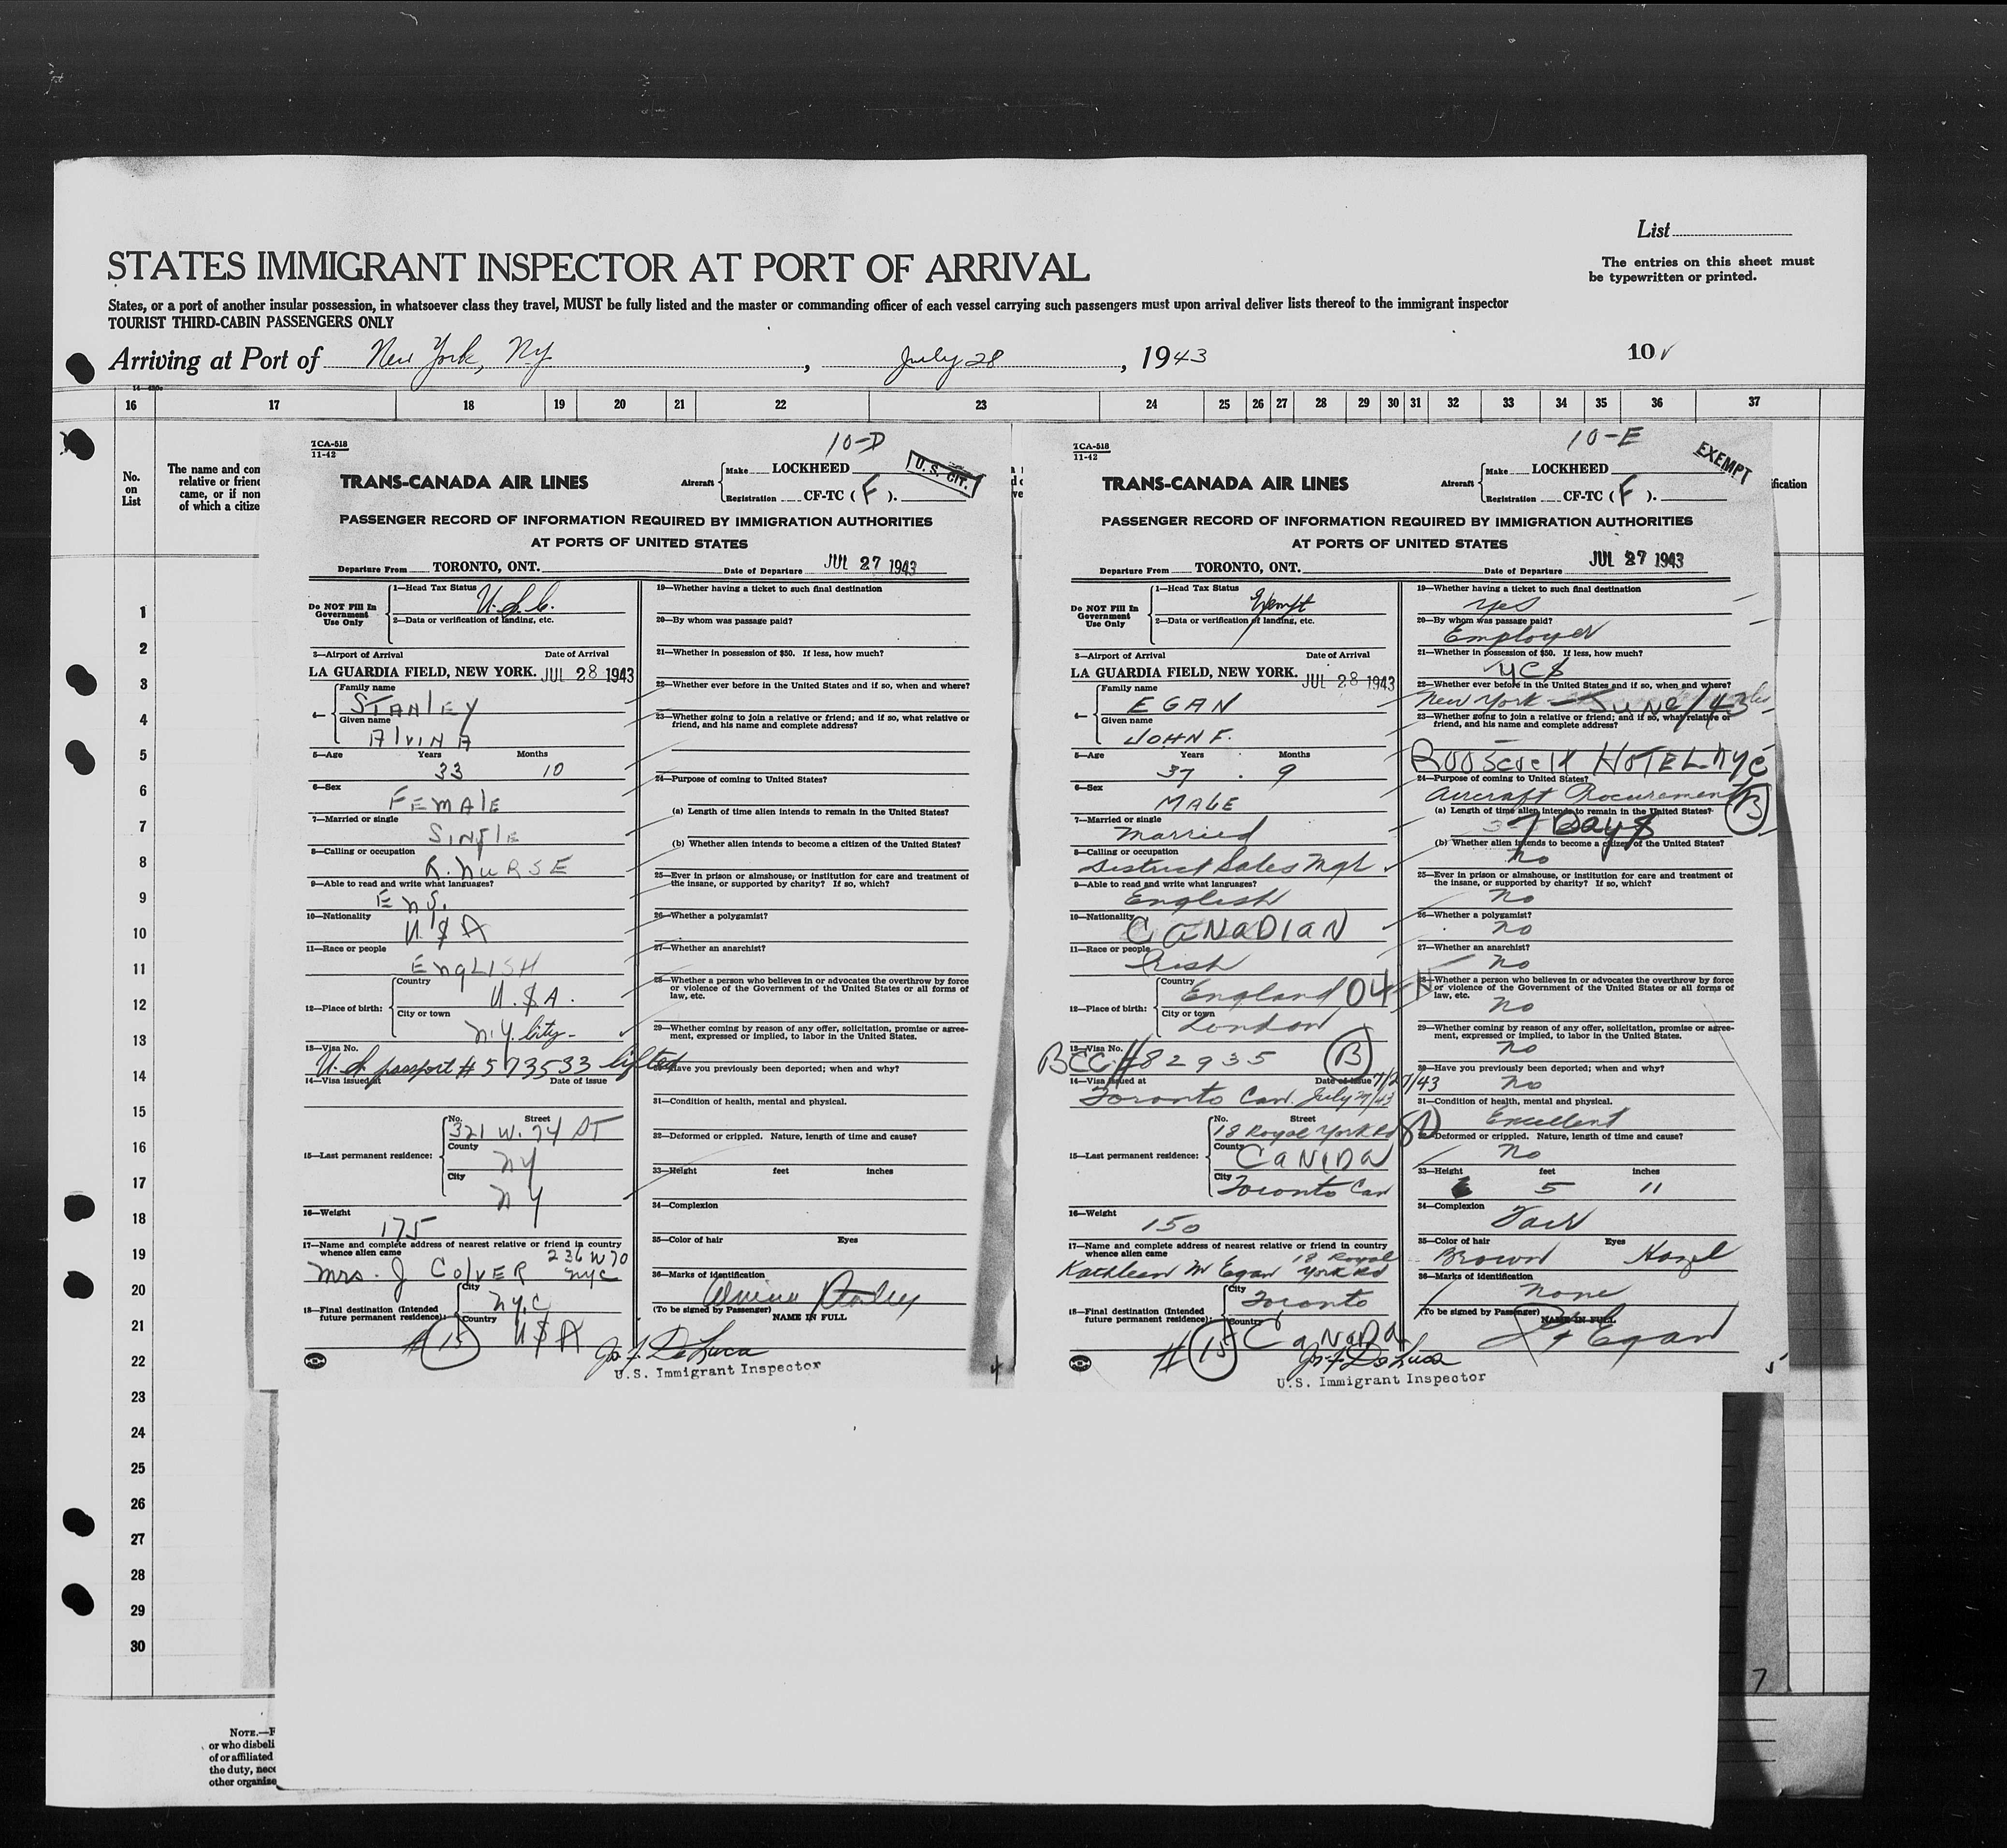 List
The entries on this sheet must
be typewritten or printed.
STATES IMMIGRANT INSPECTOR AT PORT OF ARRIVAL
States, or a port of another insular possession, in whatsoever class they travel, MUST be fully listed and the master or commanding officer of each vessel carrying such passengers must upon arrival deliver lists thereof to the immigrant inspector
TOURIST THIRD-CABIN PASSENGERS ONLY
Arriving at Port of New York, NY, July 28, 1943
10
16 17 18 19 20 21 22 23 24 25 26 27 28 29 30 31 32 33 34 35 36 37
No.
on
List
The name and con
relative or friend
came, or if non
of which a citize
ification
1
2
3
4
5
6
7
8
9
10
11
12
13
14
15
16
17
18
19
20
21
22
23
24
25
26
27
28
29
30
NOTE.—F
or who disbeli
of or affiliated
the duty, nece
other organize
TCA-518
11-42
10-D
TRANS-CANADA AIR LINES
Aircraft
Make LOCKHEED
Registration CF-TC (F).
U.S. CIT.
PASSENGER RECORD OF INFORMATION REQUIRED BY IMMIGRATION AUTHORITIES
AT PORTS OF UNITED STATES
Departure From TORONTO, ONT. Date of Departure JUL 27 1943
Do NOT Fill In
Government
Use Only
1—Head Tax Status U.S.C.
2—Data or verification of landing, etc.
3—Airport of Arrival Date of Arrival
LA GUARDIA FIELD, NEW YORK. JUL 28 1943
4—
Family name
STANLEY
Given name
AlviNA
5—Age Years Months
33 10
6—Sex
FEMAlE
7—Married or single
SINglE
8—Calling or occupation
R. NURSE
9—Able to read and write what languages?
Eng.
10—Nationality
U.S.A
11—Race or people
ENgLISH
12—Place of birth:
Country
U.S.A.
City or town
N.Y. City
13—Visa No.
U.S. passport # 573533 lifted
14—Visa issued at Date of issue
15—Last permanent residence:
No. Street
321 W. 74 ST
County
NY
City
NY
16—Weight
175
17—Name and complete address of nearest relative or friend in country
whence alien came
236 W 70
Mrs. J COlVER NYC
18—Final destination (Intended
future permanent residence):
City
NY.C
Country
USA
# 15
19—Whether having a ticket to such final destination
20—By whom was passage paid?
21—Whether in possession of $50. If less, how much?
22—Whether ever before in the United States and if so, when and where?
23—Whether going to join a relative or friend; and if so, what relative or
friend, and his name and complete address?
24—Purpose of coming to United States?
(a) Length of time alien intends to remain in the United States?
(b) Whether alien intends to become a citizen of the United States?
25—Ever in prison or almshouse, or institution for care and treatment of
the insane, or supported by charity? If so, which?
26—Whether a polygamist?
27—Whether an anarchist?
28—Whether a person who believes in or advocates the overthrow by force
or violence of the Government of the United States or all forms of
law, etc.
29—Whether coming by reason of any offer, solicitation, promise or agree-
ment, expressed or implied, to labor in the United States.
30—Have you previously been deported; when and why?
31—Condition of health, mental and physical.
32—Deformed or crippled. Nature, length of time and cause?
33—Height feet inches
34—Complexion
35—Color of hair Eyes
36—Marks of identification
Alvina Stanley
(To be signed by Passenger) NAME IN FULL
Jos. F. DeLuca
U.S. Immigrant Inspector
4
TCA-518
11-42
10-E
TRANS-CANADA AIR LINES
Aircraft
Make LOCKHEED
Registration CF-TC (F).
EXEMPT
PASSENGER RECORD OF INFORMATION REQUIRED BY IMMIGRATION AUTHORITIES
AT PORTS OF UNITED STATES
Departure From TORONTO, ONT. Date of Departure JUL 27 1943
Do NOT Fill In
Government
Use Only
1—Head Tax Status Exempt
2—Data or verification of landing, etc.
3—Airport of Arrival Date of Arrival
LA GUARDIA FIELD, NEW YORK. JUL 28 1943
4—
Family name
EGAN
Given name
JOHN F.
5—Age Years Months
37 9
6—Sex
MALE
7—Married or single
Married
8—Calling or occupation
District Sales Mgr
9—Able to read and write what languages?
English
10—Nationality
CANADIAN
11—Race or people
Irish
12—Place of birth:
Country
England 04 N
City or town
London
13—Visa No.
BCC # 82935 (B)
14—Visa issued at Date of issue 7/27/43
Toronto Can. July 27/43
15—Last permanent residence:
No. Street
18 Royal York Rd
County
CANADA
City
Toronto Can
16—Weight
150
17—Name and complete address of nearest relative or friend in country
whence alien came
18 Royal
Kathleen M Egan York Rd
18—Final destination (Intended
future permanent residence):
City
Toronto
Country
CANADA
# 15
19—Whether having a ticket to such final destination
yes
20—By whom was passage paid?
Employer
21—Whether in possession of $50. If less, how much?
YES
22—Whether ever before in the United States and if so, when and where?
New York JUNE/43
23—Whether going to join a relative or friend; and if so, what relative or
friend, and his name and complete address?
ROOSEvElt HOTEL NYC
24—Purpose of coming to United States?
Aircraft Procurement (B)
(a) Length of time alien intends to remain in the United States?
7 Days
(b) Whether alien intends to become a citizen of the United States?
No
25—Ever in prison or almshouse, or institution for care and treatment of
the insane, or supported by charity? If so, which?
No
26—Whether a polygamist?
No
27—Whether an anarchist?
No
28—Whether a person who believes in or advocates the overthrow by force
or violence of the Government of the United States or all forms of
law, etc.
No
29—Whether coming by reason of any offer, solicitation, promise or agree-
ment, expressed or implied, to labor in the United States.
No
30—Have you previously been deported; when and why?
No
31—Condition of health, mental and physical.
Excellent
32—Deformed or crippled. Nature, length of time and cause?
No
33—Height feet inches
5 11
34—Complexion
Fair
35—Color of hair Eyes
Brown Hazel
36—Marks of identification
None
(To be signed by Passenger) NAME IN FULL
J F Egan
Jos. F. DeLuca
U.S. Immigrant Inspector
5
7